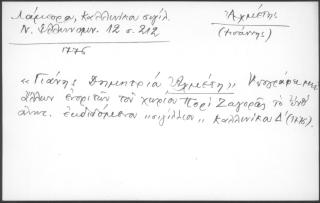 Λάμπρου, Καλλινίκου σιγίλ.
Ν. Ελληνομν. 12 σ. 212
1776
Αχμέτης
(Ιωάννης)
«Γιάνης Δημητρίου Αχμέτη» Υπογράφει μετ'
άλλων εποίκων του χωρίου Περί Ζαγοράς το
εκδιδόμενον "σιγίλλιον" Καλλινίκου Δ' (1776).